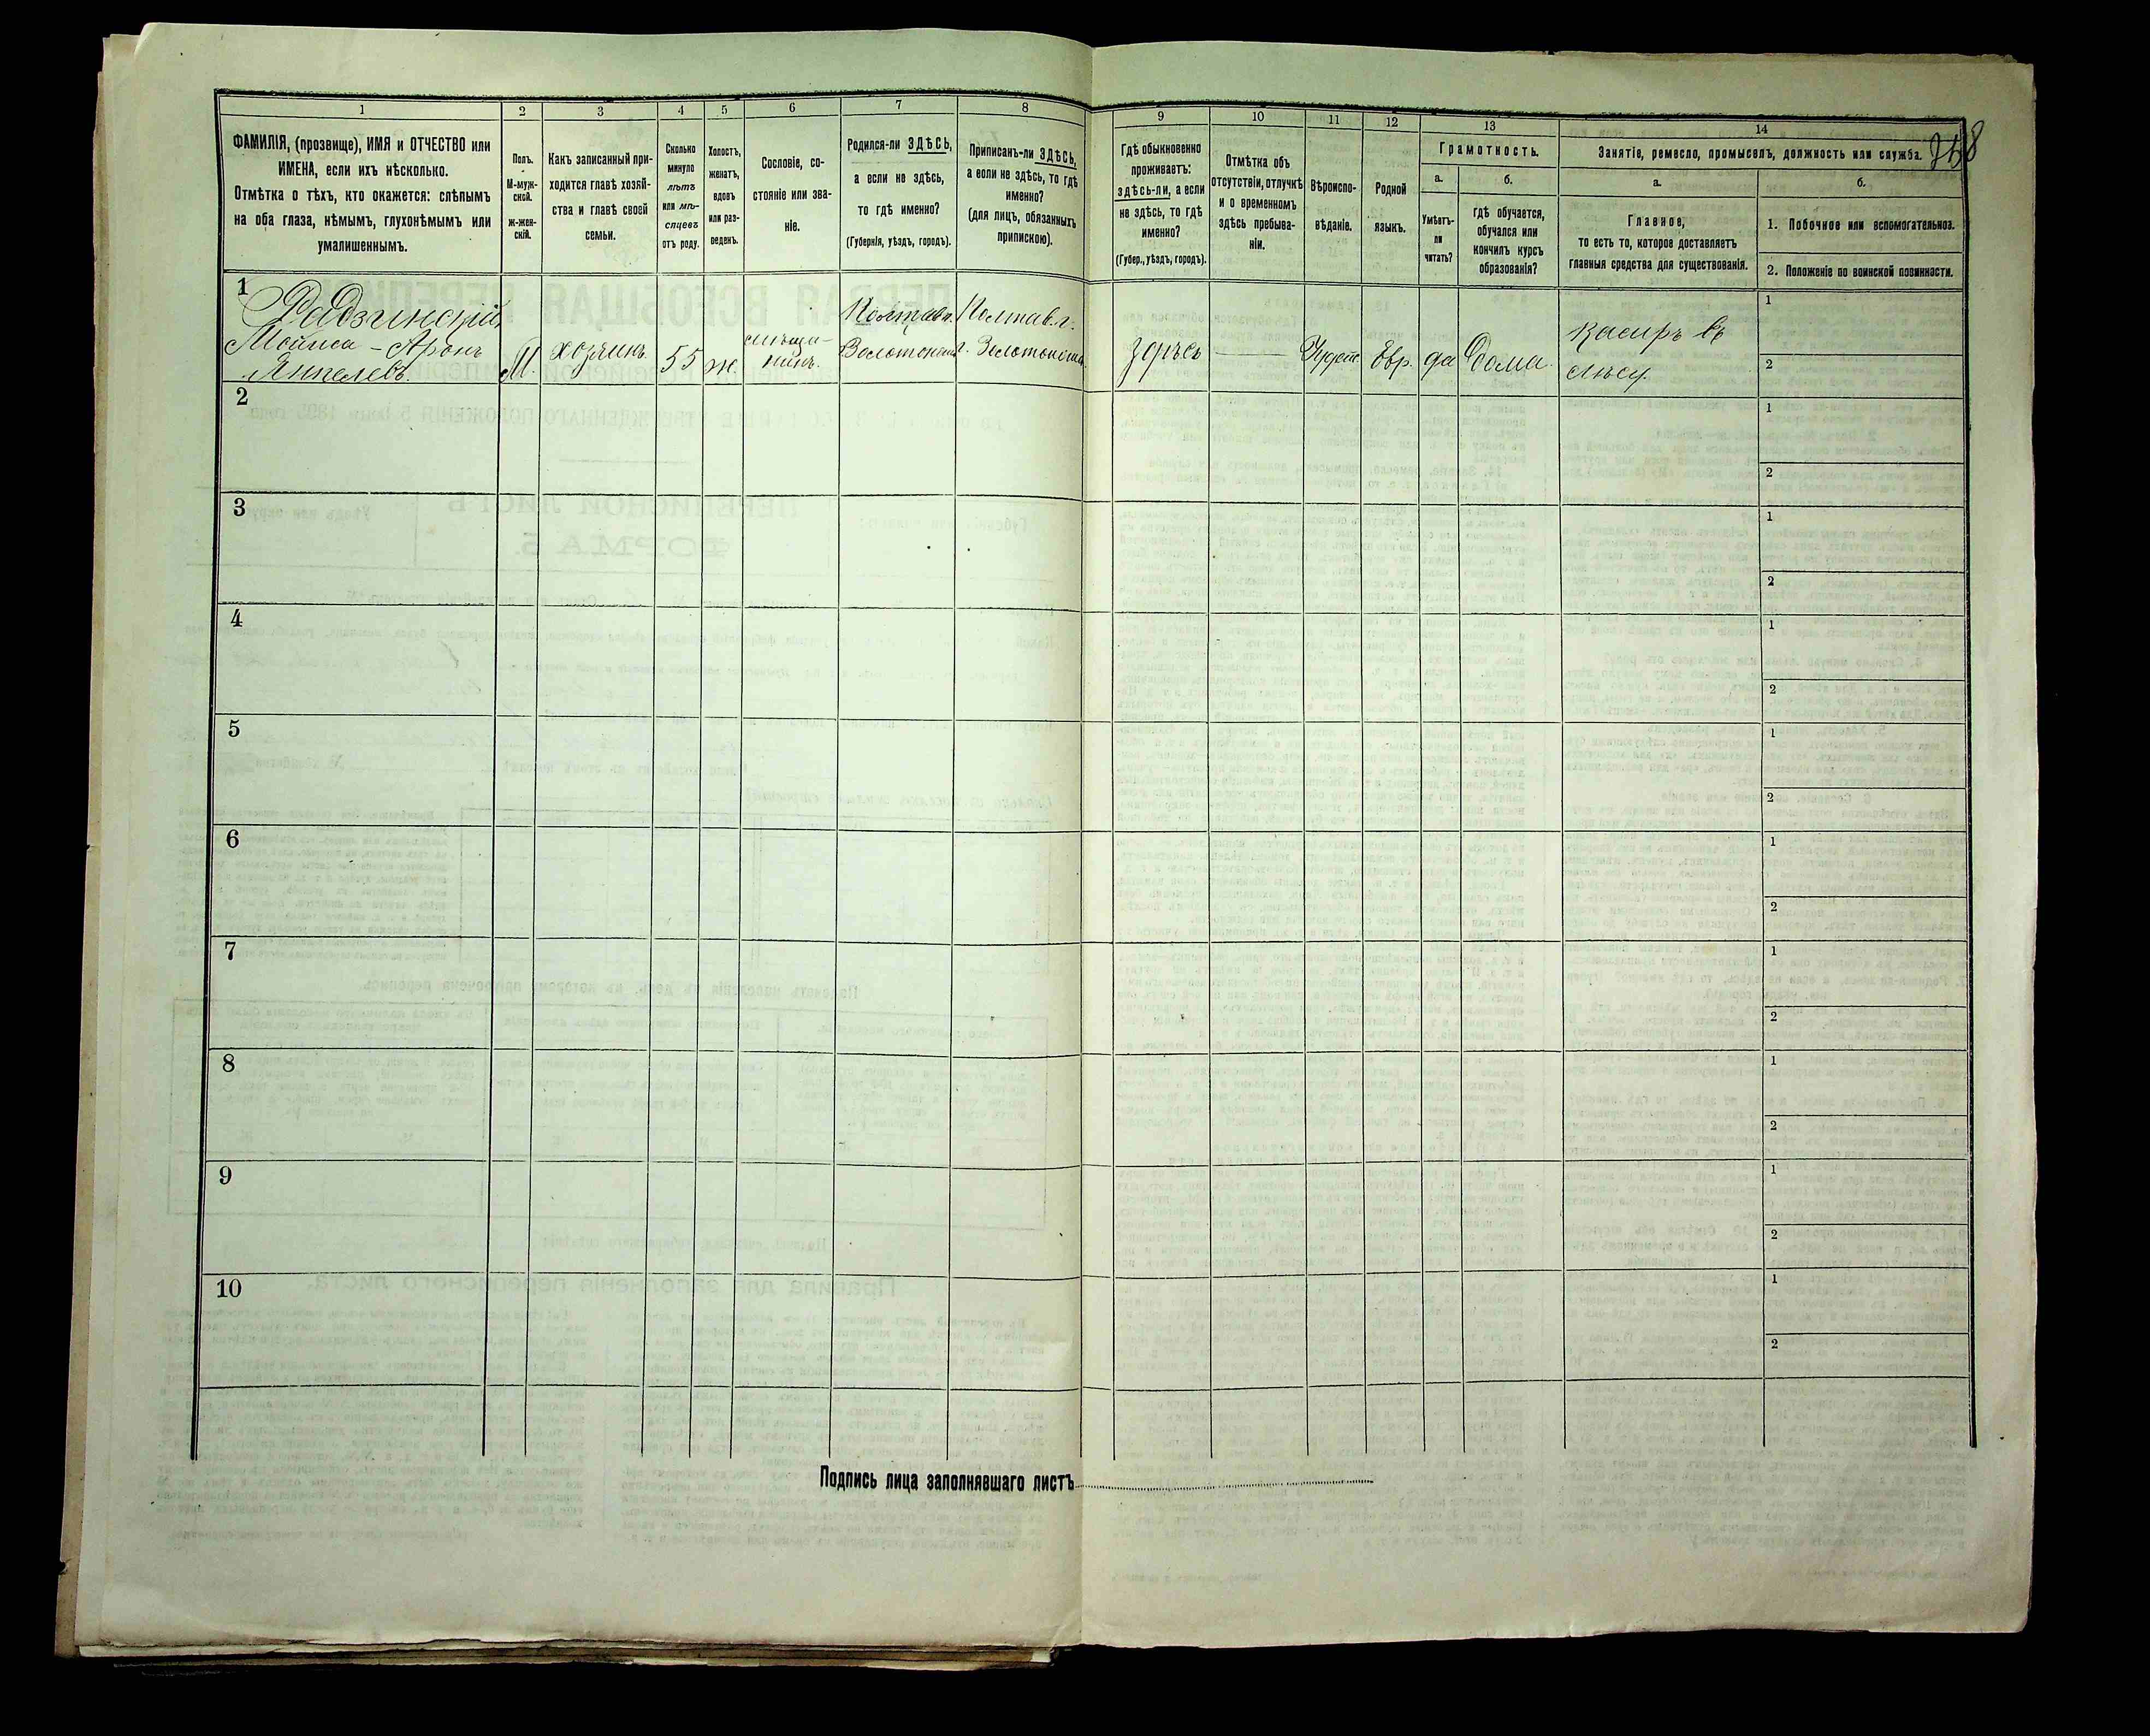 358
1
ФАМИЛІЯ, (прозвище), ИМЯ и ОТЧЕСТВО или
ИМЕНА, если ихъ нѣсколько.
Отмѣтка о тѣхъ, кто окажется: слѣпымъ
на оба глаза, нѣмымъ, глухонѣмымъ или
умалишеннымъ.
2
Полъ.
М-муж-
ской.
ж-жен-
скій.
3
Какъ записанный при-
ходится главѣ хозяй-
ства и главѣ своей
семьи.
4
Сколько
минуло
лѣтъ
или мѣ-
сяцевъ
отъ роду.
5
Холостъ,
женатъ,
вдовъ
или раз-
веденъ.
6
Сословіе, со-
стояніе или зва-
ніе.
7
Родился-ли ЗДѢСЬ,
а если не здѣсь,
то гдѣ именно?
(Губернія, уѣздъ, городъ).
8
Приписанъ-ли ЗДѢСЬ,
а если не здѣсь, то гдѣ
именно?
(для лицъ, обязанныхъ
припискою).
9
Гдѣ обыкновенно
проживаетъ:
здѣсь-ли, а если
не здѣсь, то гдѣ
именно?
(Губер., уѣздъ, городъ).
10
Отмѣтка объ
отсутствіи, отлучкѣ
и о временномъ
здѣсь пребыва-
ніи.
11
Вѣроиспо-
вѣданіе.
12
Родной
языкъ.
13
Грамотность.
а.
Умѣетъ-
ли
читать?
б.
гдѣ обучается,
обучался или
кончилъ курсъ
образованія?
14
Занятіе, ремесло, промыселъ, должность или служба.
а.
Главное,
то есть то, которое доставляетъ
главныя средства для существованія.
б.
1. Побочное или вспомогательное.
2. Положеніе по воинской повинности.
1
Радзинскій
Мойиса - Аронъ
Янкелевъ.
М.
хозяинъ
55
ж.
мѣща-
нинъ.
Полтав.
Золотонош
Полтав. г.
Золотонош
здѣсь
Іудейс
Евр.
да
Дома
Касиръ въ
лѣсу.
1
2
2
1
2
3
1
2
4
1
2
5
1
2
6
1
2
7
1
2
8
1
2
9
1
2
10
1
2
Подпись лица заполнявшаго листъ